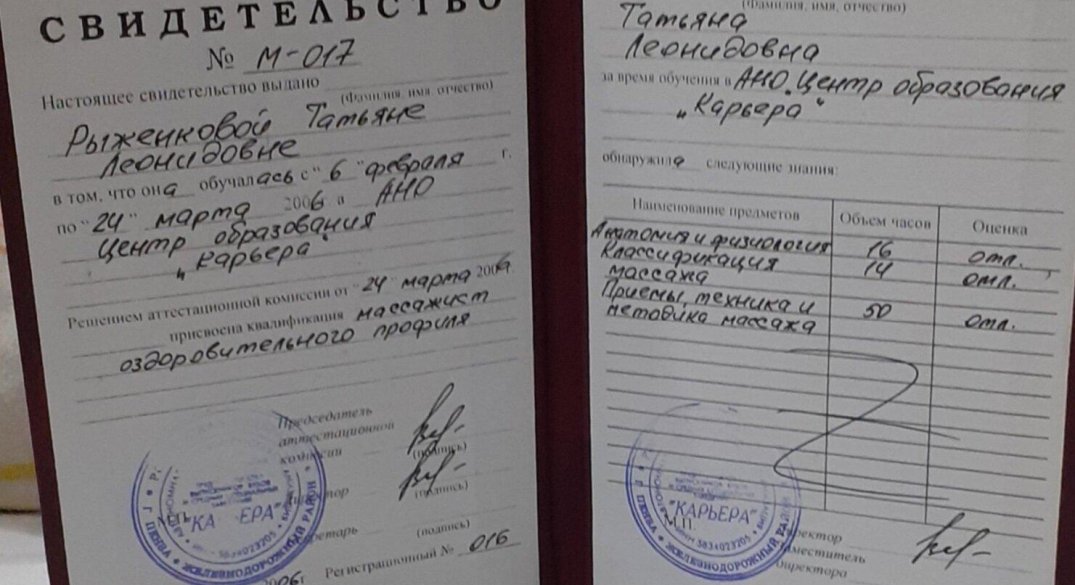 СВИДЕТЕЛЬСТВО
№ М-017
Настоящее свидетельство выдано
(Фамилия, имя, отчество)
Рыженковой Татьяне
Леонидовне
в том, что она обучалась с "6" февраля г.
по "24" марта 2006 в АНО
Центр образования
"Карьера"
Решением аттестационной комиссии от "24" марта 2006
присвоена квалификация массажист
оздоровительного профиля
Председатель
аттестационной
комиссии
(подпись)
Директор
(подпись)
М.П.
Секретарь
(подпись)
2006г Регистрационный № 016
"КАРЬЕРА"
г. ПЕНЗА • ЖЕЛЕЗНОДОРОЖНЫЙ РАЙОН
(Фамилия, имя, отчество)
Татьяна
Леонидовна
за время обучения в АНО Центр образования
"Карьера"
обнаружила следующие знания:
Наименование предметов Объем часов Оценка
Анатомия и физиология 16 отл.
Классификация 14 отл.
массажа
Приемы, техника и 50 отл.
методика массажа
"КАРЬЕРА"
М.П.
ЖЕЛЕЗНОДОРОЖНЫЙ
Директор
Заместитель
директора